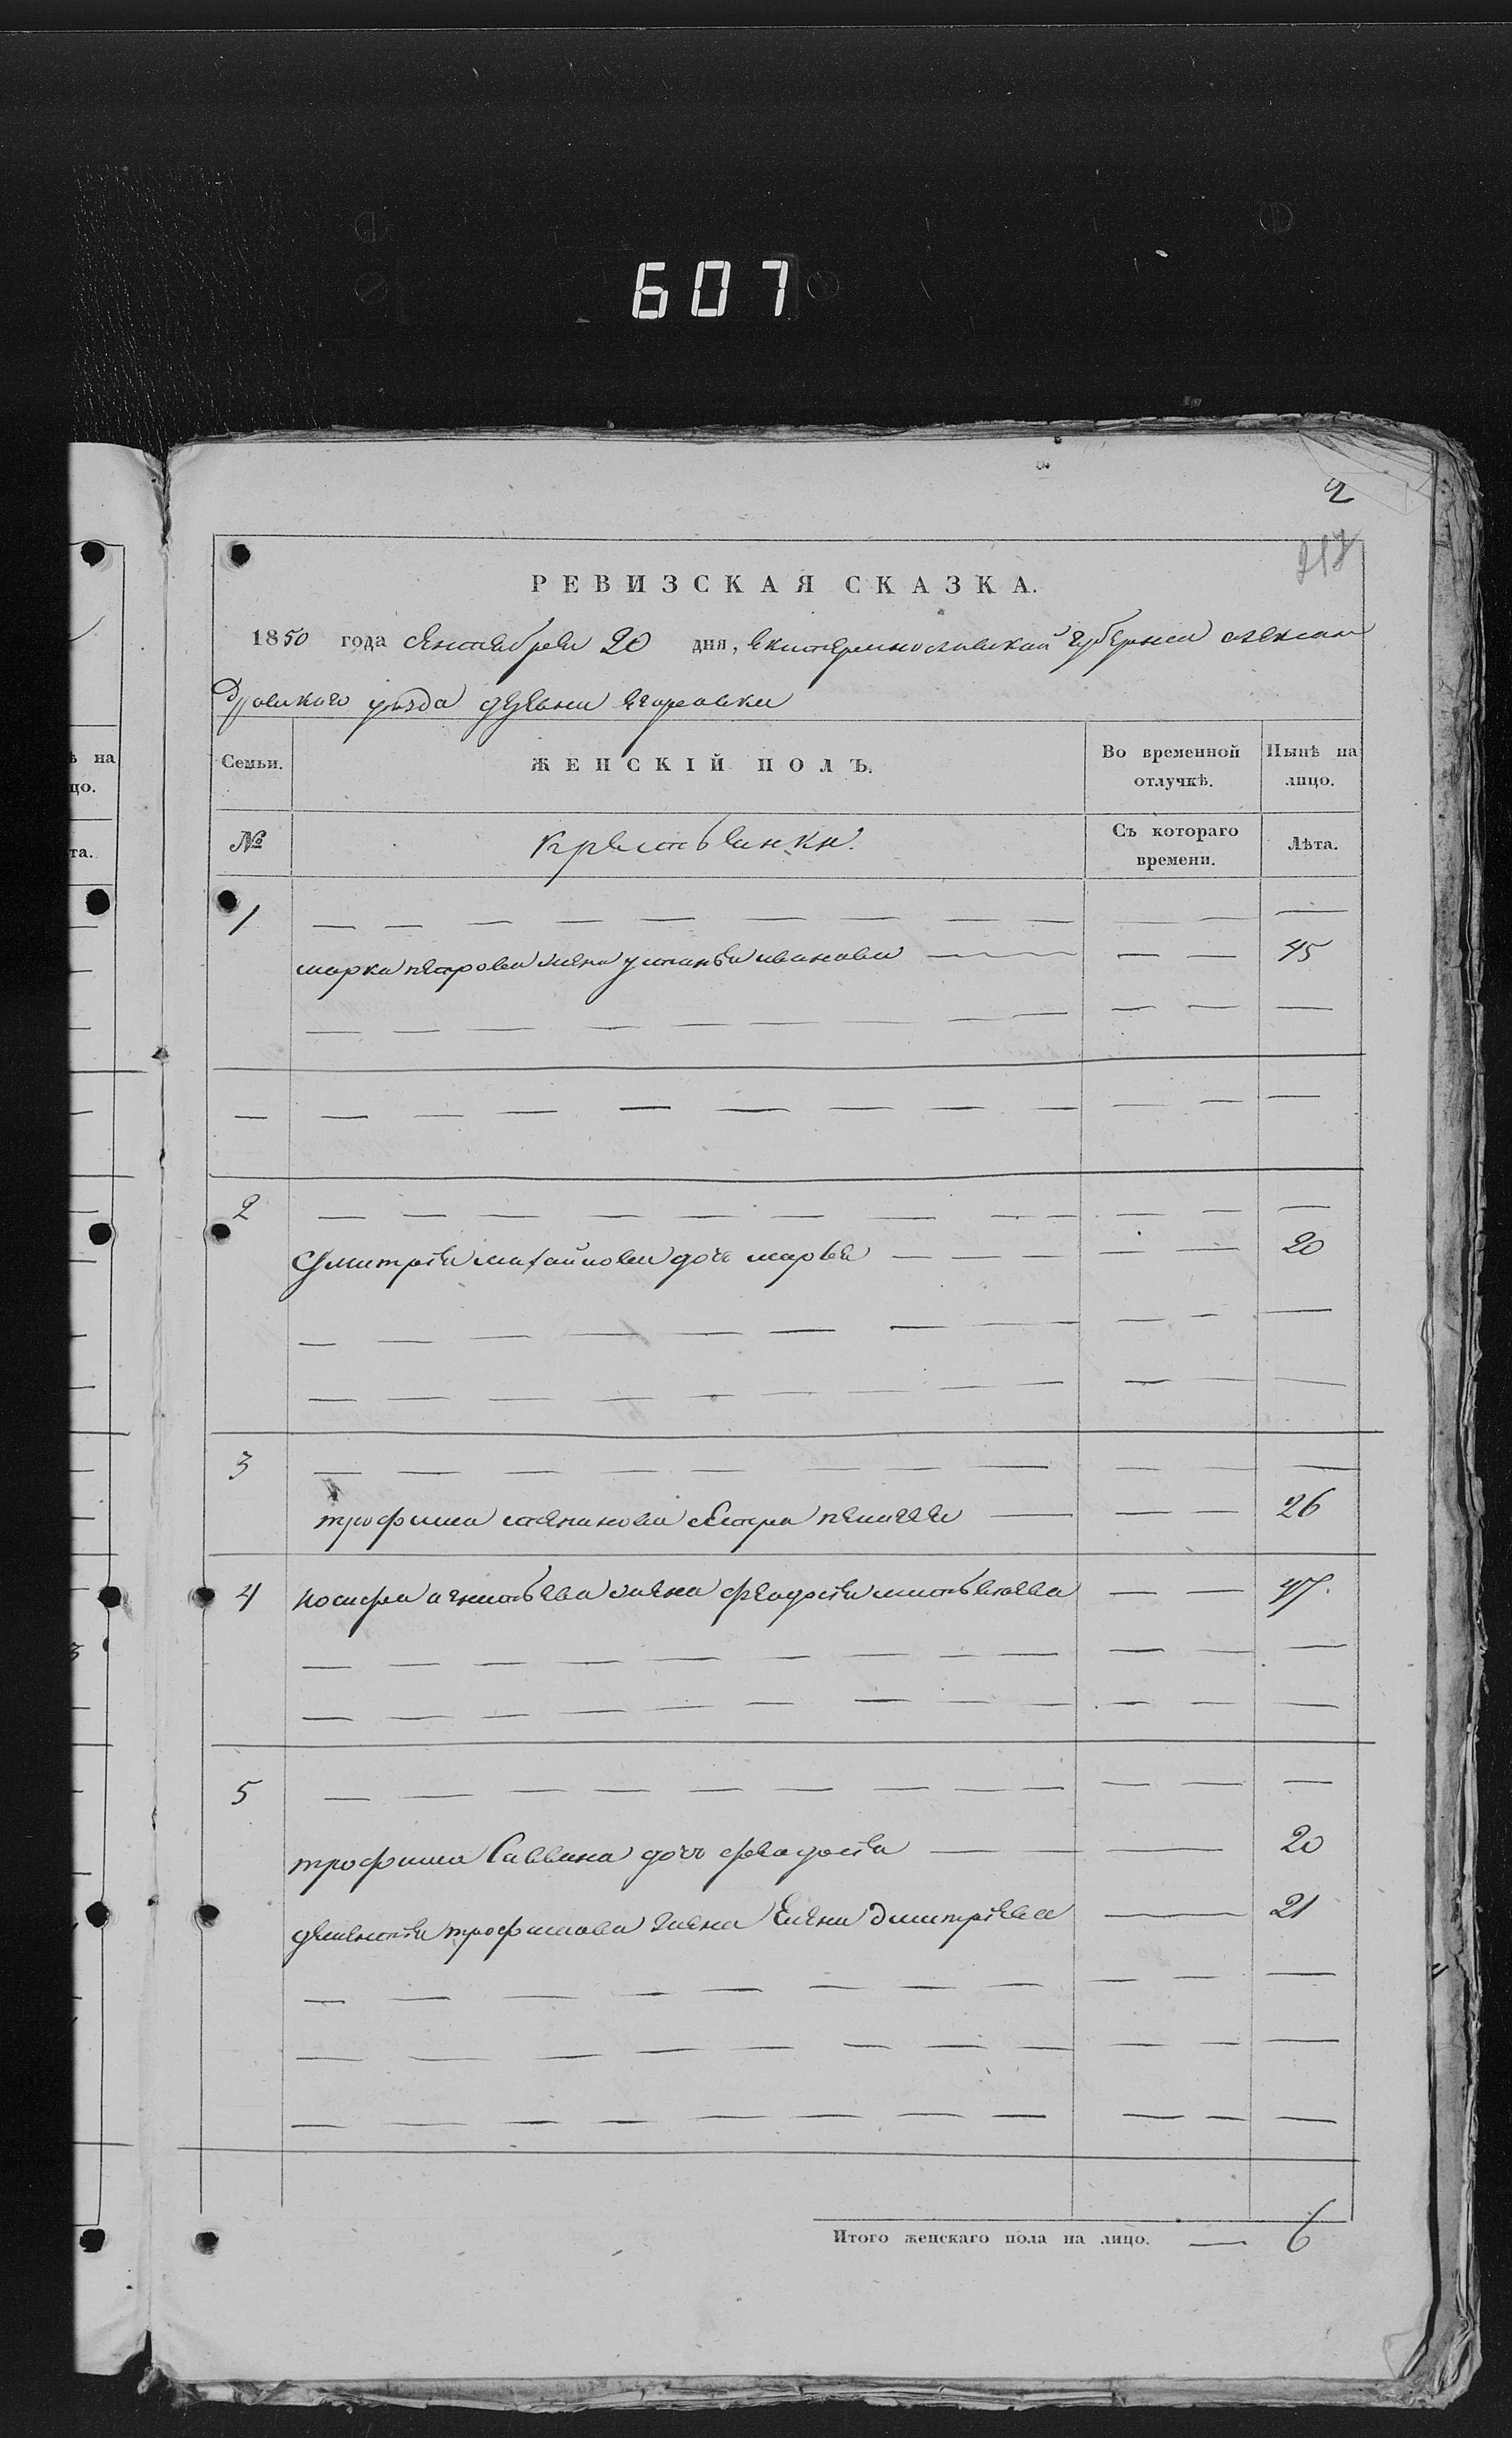 607
2
217
РЕВИЗСКАЯ СКАЗКА.
1850 года сентября 20 дня, екатеринославской губернии алексан
дровского уезда деревни егоровки
Семьи. ЖЕНСКІЙ ПОЛЪ. Во временной отлучкѣ. Нынѣ на лицо.
№ крестьянки. Съ котораго времени. Лѣта.
1
марка петрова жена устинья иванова 45
2
дмитрія михайлова дочь марья 20
3
трофима степанова сестра пелагея 26
4 иосифа игнатьева жена феодосія 47.
5
трофима Саввина дочь феодосія 20
трофимова жена Елена дмитріева 21
Итого женскаго пола на лицо. 6
ѣ на
цо.
та.